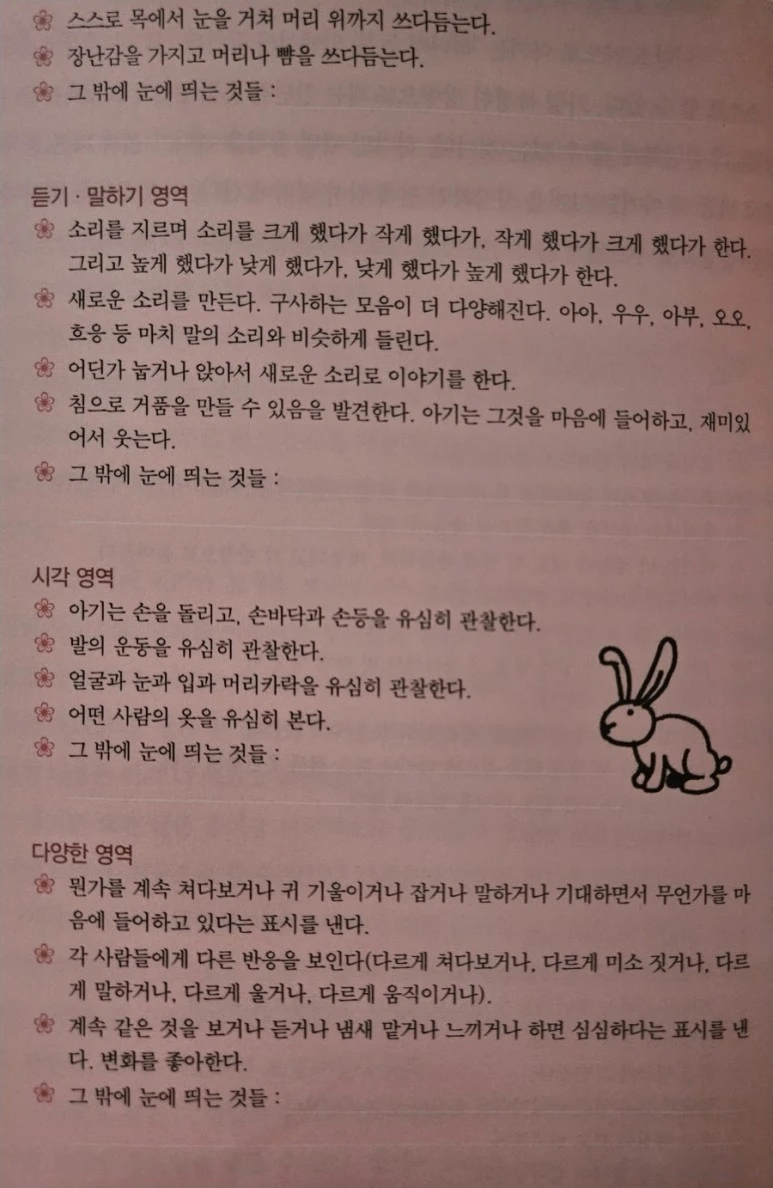 스스로 목에서 눈을 거쳐 머리 위까지 쓰다듬는다.
장난감을 가지고 머리나 뺨을 쓰다듬는다.
그 밖에 눈에 띄는 것들 :
듣기 · 말하기 영역
소리를 지르며 소리를 크게 했다가 작게 했다가, 작게 했다가 크게 했다가 한다.
그리고 높게 했다가 낮게 했다가, 낮게 했다가 높게 했다가 한다.
새로운 소리를 만든다. 구사하는 모음이 더 다양해진다. 아아, 우우, 아부, 오오,
흐응 등 마치 말의 소리와 비슷하게 들린다.
어딘가 눕거나 앉아서 새로운 소리로 이야기를 한다.
침으로 거품을 만들 수 있음을 발견한다. 아기는 그것을 마음에 들어하고, 재미있
어서 웃는다.
그 밖에 눈에 띄는 것들 :
시각 영역
아기는 손을 돌리고, 손바닥과 손등을 유심히 관찰한다.
발의 운동을 유심히 관찰한다.
얼굴과 눈과 입과 머리카락을 유심히 관찰한다.
어떤 사람의 옷을 유심히 본다.
그 밖에 눈에 띄는 것들 :
다양한 영역
뭔가를 계속 쳐다보거나 귀 기울이거나 잡거나 말하거나 기대하면서 무언가를 마
음에 들어하고 있다는 표시를 낸다.
각 사람들에게 다른 반응을 보인다(다르게 쳐다보거나, 다르게 미소 짓거나, 다르
게 말하거나, 다르게 울거나, 다르게 움직이거나).
계속 같은 것을 보거나 듣거나 냄새 맡거나 느끼거나 하면 심심하다는 표시를 낸
다. 변화를 좋아한다.
그 밖에 눈에 띄는 것들 :